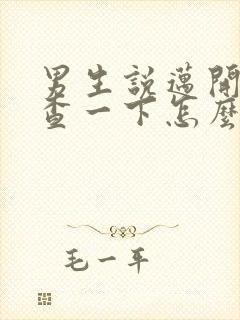 男生說邁開
查一下怎麼
毛一平